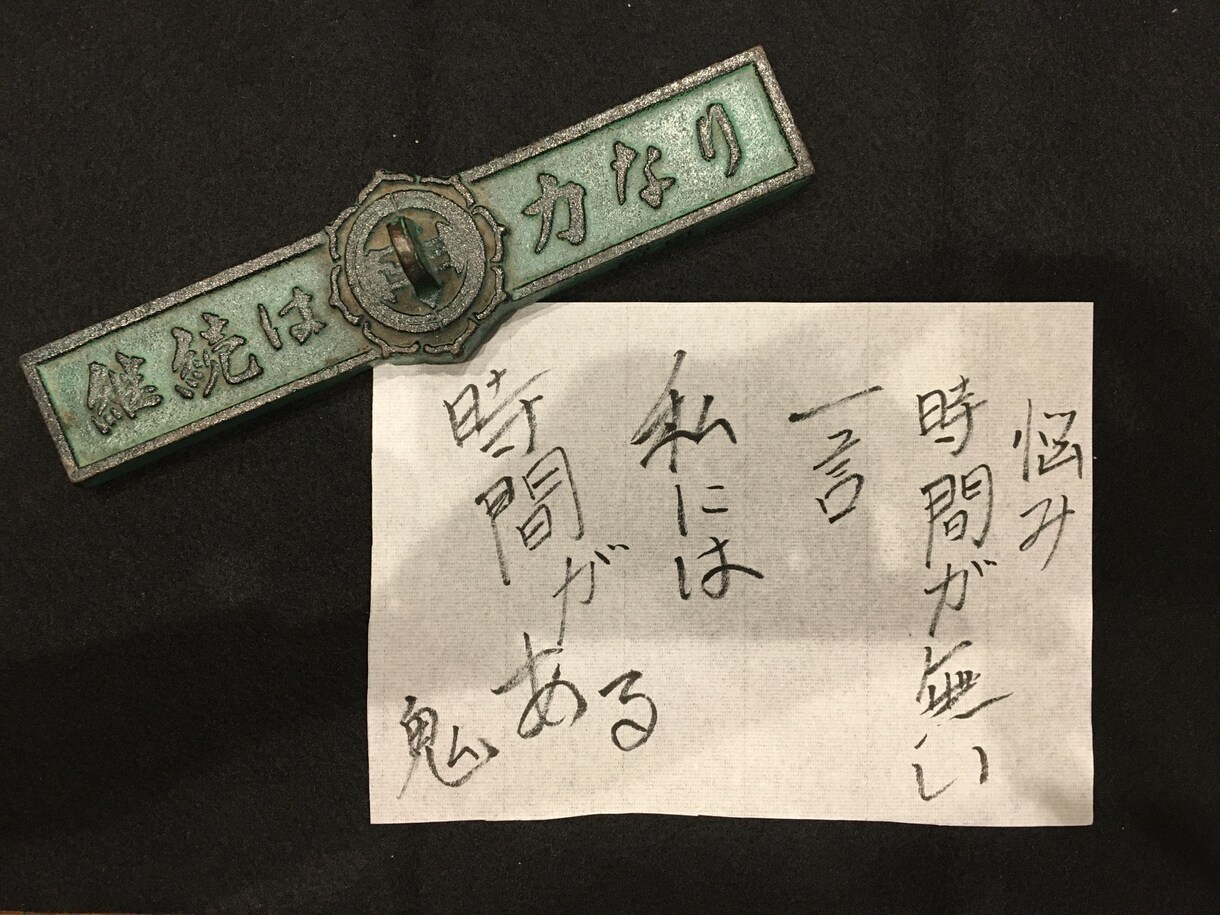 継続は力なり
悩み
時間が無い
一言
私には
時間がある
鬼